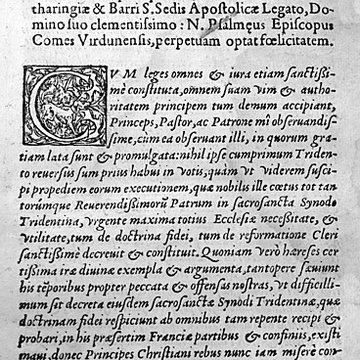 tharingiæ & Barri S. Sedis Apostolicæ Legato, Do-
mino suo clementissimo : N. Psalmęus Episcopus
Comes Virdunensis, perpetuam optat fœlicitatem.
CVM leges omnes & iura etiam sanctißi-
mè constituta, omnem suam vim & autho-
ritatem principem tum demum accipiant,
Princeps, Pastor, ac Patrone mi obseruandis-
sime, cùm ea obseruant illi, in quorum gra-
tiam lata sunt & promulgata: nihil ipse cumprimum Tridento
reuersus sum prius habui in votis, quàm vt viderem susci-
pi propediem eorum executionem, quæ nobilis ille cœtus tot tan-
torúmque Reuerendißimorũ Patrum in sacrosancta Synodo
Tridentina, vrgente maxima totius Ecclesiæ neceßitate, &
vtilitate, tum de doctrina fidei, tum de reformatione Cleri
sanctißimè decreuit & constituit. Quoniam verò hæreses cer
tißima iræ diuinæ exempla & argumenta, tantopere sæuiunt
his tẽporibus propter peccata & offensas nostras, vt difficilli-
mum sit decreta eiusdem sacrosanctæ Synodi Tridentinæ, quæ
doctrinam fidei respiciunt ab omnibus tam repente recipi &
probari, in his præsertim Franciæ partibus & confiniis, existi
maui, donec Principes Christiani rebus nunc iam miserè con-